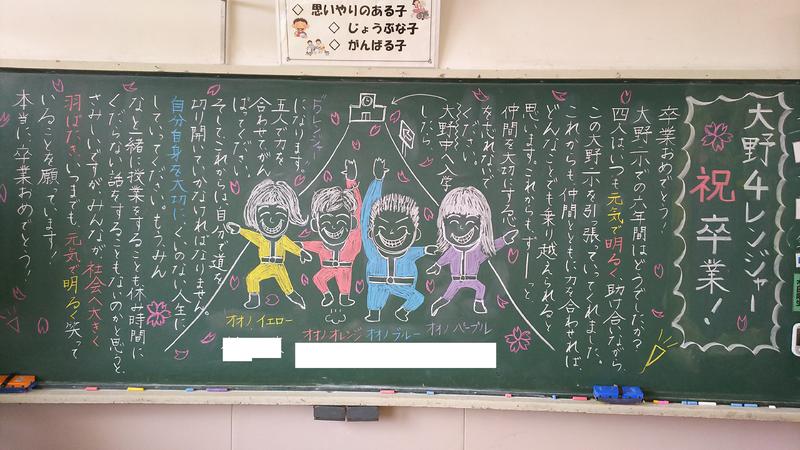 ◇ 思いやりのある子
◇ じょうぶな子
◇ がんばる子
大野4レンジャー
祝卒業!
卒業おめでとう!
大野二小での六年間はどうでしたか?
四人はいつも元気で明るく助け合いながら、
この大野二小を引っ張っていってくれました。
これからも仲間とともに力を合わせれば、
どんなことでも乗り越えられると
思います。これからもずーーっと
仲間を大切にする心
をわすれないで
ください。
大野中へ入学
したら、
5レンジャー
になります。
五人で力を
合わせてがん
ばってください。
そしてこれからは自分で道を
切り開いていかなければなりません。
自分自身を大切に、くいのない人生に
していってください。もうみん
なと一緒に授業をすることも休み時間に
くだらない話をすることもないのかと思うと、
さみしいですが、みんなが社会へ大きく
羽ばたき、いつまでも元気で明るく笑って
いることを願っています!
本当に卒業おめでとう。
オオノイエロー
オオノオレンジ
オオノブルー
オオノパープル